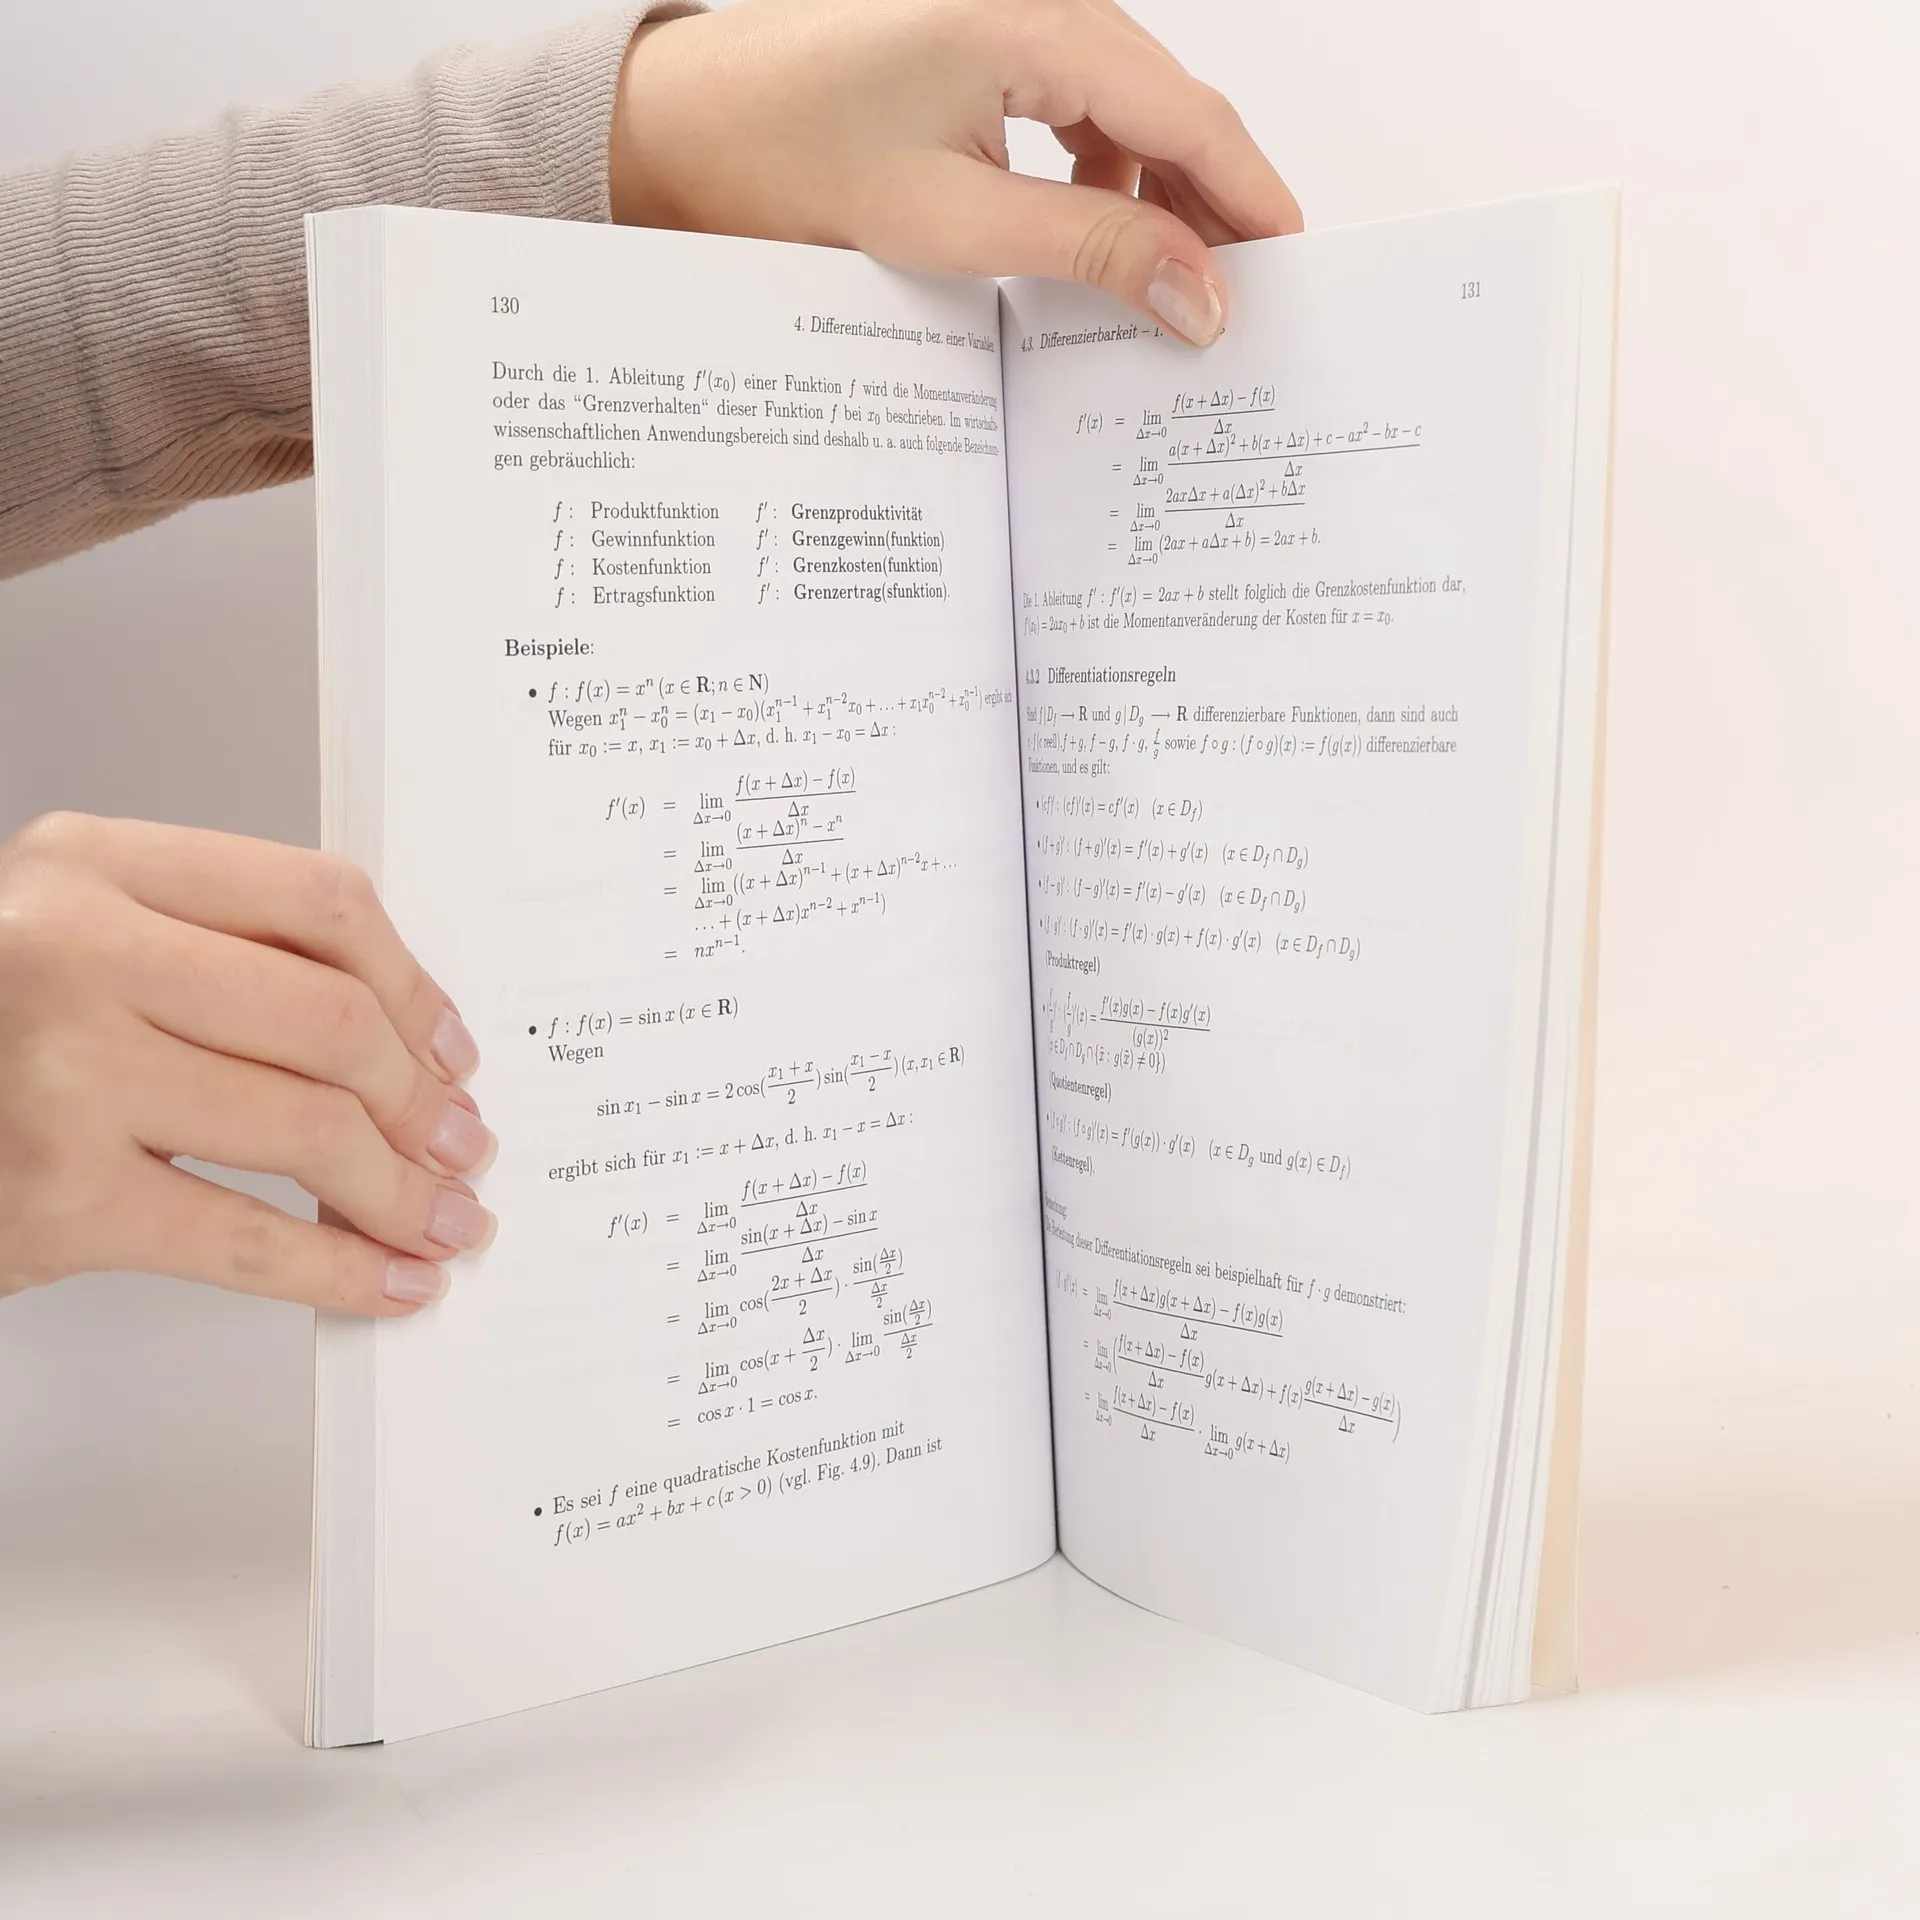 130
4. Differentialrechnung bez. einer Variablen
Durch die 1. Ableitung f′(x₀) einer Funktion f wird die Momentanveränderung
oder das “Grenzverhalten“ dieser Funktion f bei x₀ beschrieben. Im wirtschafts-
wissenschaftlichen Anwendungsbereich sind deshalb u. a. auch folgende Bezeichnun-
gen gebräuchlich:
f : Produktfunktion f′ : Grenzproduktivität
f : Gewinnfunktion f′ : Grenzgewinn(funktion)
f : Kostenfunktion f′ : Grenzkosten(funktion)
f : Ertragsfunktion f′ : Grenzertrag(sfunktion).
Beispiele:
• f : f(x) = xⁿ (x ∈ R; n ∈ N)
Wegen x₁ⁿ − x₀ⁿ = (x₁ − x₀)(x₁ⁿ⁻¹ + x₁ⁿ⁻²x₀ + … + x₁x₀ⁿ⁻² + x₀ⁿ⁻¹) ergibt sich
für x₀ := x, x₁ := x₀ + Δx, d. h. x₁ − x₀ = Δx :
f′(x) = lim_{Δx→0} (f(x + Δx) − f(x))/Δx
= lim_{Δx→0} ((x + Δx)ⁿ − xⁿ)/Δx
= lim_{Δx→0} ((x + Δx)ⁿ⁻¹ + (x + Δx)ⁿ⁻²x + …
… + (x + Δx)xⁿ⁻² + xⁿ⁻¹)
= nxⁿ⁻¹.
• f : f(x) = sin x (x ∈ R)
Wegen
sin x₁ − sin x = 2 cos((x₁ + x)/2) sin((x₁ − x)/2) (x, x₁ ∈ R)
ergibt sich für x₁ := x + Δx, d. h. x₁ − x = Δx :
f′(x) = lim_{Δx→0} (f(x + Δx) − f(x))/Δx
= lim_{Δx→0} (sin(x + Δx) − sin x)/Δx
= lim_{Δx→0} cos((2x + Δx)/2) · sin(Δx/2)/(Δx/2)
= lim_{Δx→0} cos(x + Δx/2) · lim_{Δx→0} sin(Δx/2)/(Δx/2)
= cos x · 1 = cos x.
• Es sei f eine quadratische Kostenfunktion mit
f(x) = ax² + bx + c (x > 0) (vgl. Fig. 4.9). Dann ist
131
4.3. Differenzierbarkeit – 1.
f′(x) = lim_{Δx→0} (f(x + Δx) − f(x))/Δx
= lim_{Δx→0} (a(x + Δx)² + b(x + Δx) + c − ax² − bx − c)/Δx
= lim_{Δx→0} (2axΔx + a(Δx)² + bΔx)/Δx
= lim_{Δx→0} (2ax + aΔx + b) = 2ax + b.
Die 1. Ableitung f′ : f′(x) = 2ax + b stellt folglich die Grenzkostenfunktion dar,
f′(x₀) = 2ax₀ + b ist die Momentanveränderung der Kosten für x = x₀.
4.3.2 Differentiationsregeln
Sind f|D_f → R und g|D_g → R differenzierbare Funktionen, dann sind auch
c·f (c reell), f + g, f − g, f · g, f/g sowie f ∘ g : (f ∘ g)(x) := f(g(x)) differenzierbare
Funktionen, und es gilt:
• (cf)′ : (cf)′(x) = cf′(x) (x ∈ D_f)
• (f + g)′ : (f + g)′(x) = f′(x) + g′(x) (x ∈ D_f ∩ D_g)
• (f − g)′ : (f − g)′(x) = f′(x) − g′(x) (x ∈ D_f ∩ D_g)
• (f · g)′ : (f · g)′(x) = f′(x) · g(x) + f(x) · g′(x) (x ∈ D_f ∩ D_g)
(Produktregel)
• (f/g)′ : (f/g)′(x) = (f′(x)g(x) − f(x)g′(x))/(g(x))²
(x ∈ D_f ∩ D_g ∩ {x̃ : g(x̃) ≠ 0})
(Quotientenregel)
• (f ∘ g)′ : (f ∘ g)′(x) = f′(g(x)) · g′(x) (x ∈ D_g und g(x) ∈ D_f)
(Kettenregel).
dieser Differentiationsregeln sei beispielhaft für f · g demonstriert:
(f · g)′(x) = lim_{Δx→0} (f(x + Δx)g(x + Δx) − f(x)g(x))/Δx
= lim_{Δx→0} ((f(x + Δx) − f(x))/Δx g(x + Δx) + f(x) (g(x + Δx) − g(x))/Δx)
= lim_{Δx→0} (f(x + Δx) − f(x))/Δx · lim_{Δx→0} g(x + Δx)